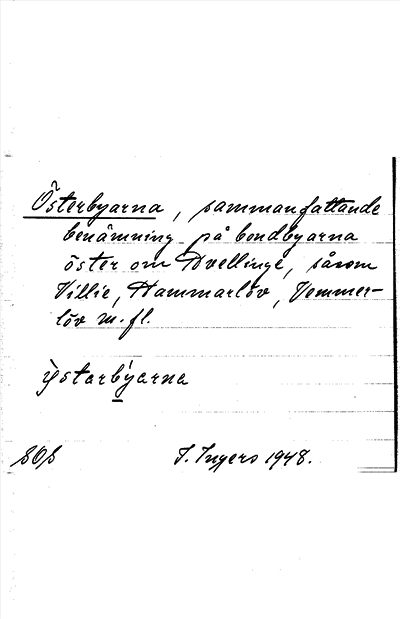 Österbyarna, sammanfattande
benämning på bondbyarna
öster om Hvellinge, såsom
Villie, Hammarlöv, Vemmer-
löv m.fl.
ỳstarbýarna
I. Ingers 1948.